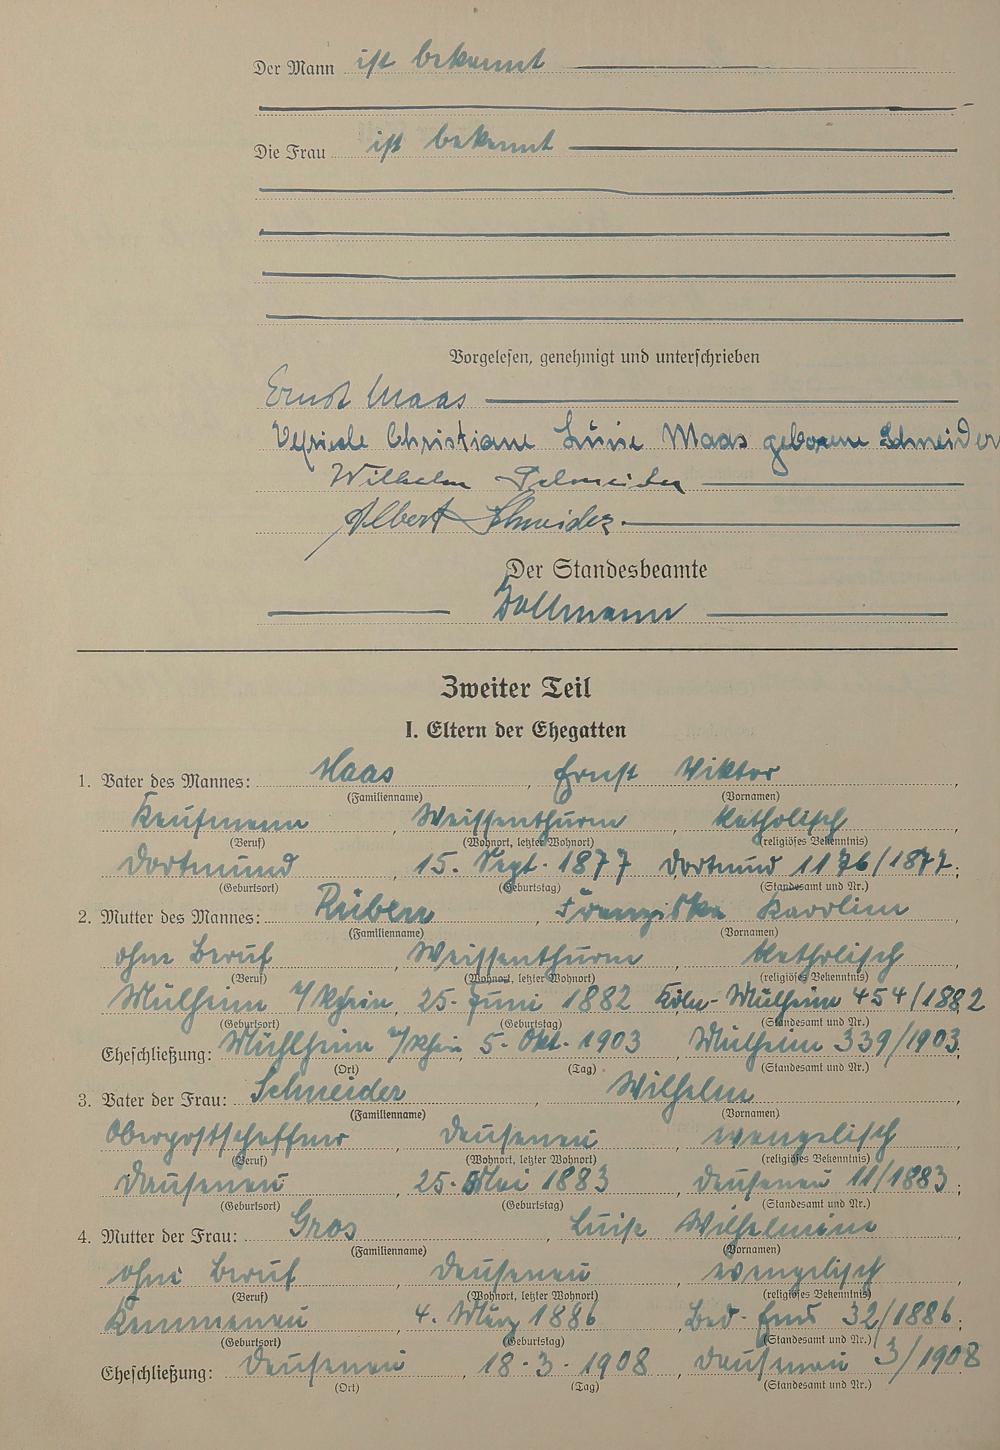 Der Mann ist bekannt
Die Frau ist bekannt
Vorgelesen, genehmigt und unterschrieben
Ernst Maas
Christiane Luise Maas geborene Schneider
Wilhelm Schneider
Albert Schneider
Der Standesbeamte
Zweiter Teil
I. Eltern der Ehegatten
1. Vater des Mannes: Maas, Ernst Viktor
(Familienname) (Vornamen)
Kaufmann, Weissenthurm, katholisch,
(Beruf) (Wohnort, letzter Wohnort) (religiöses Bekenntnis)
Dortmund, 15. Sept. 1877, Dortmund 1176/1877;
(Geburtsort) (Geburtstag) (Standesamt und Nr.)
2. Mutter des Mannes: Rüben, Franziska Karoline
(Familienname) (Vornamen)
ohne Beruf, Weissenthurm, katholisch,
(Beruf) (Wohnort, letzter Wohnort) (religiöses Bekenntnis)
Mülheim a/Rhein, 25. Juni 1882, Köln-Mülheim 454/1882
(Geburtsort) (Geburtstag) (Standesamt und Nr.)
Eheschließung: Mühlheim a/Rhein, 5. Okt. 1903, Mülheim 339/1903.
(Ort) (Tag) (Standesamt und Nr.)
3. Vater der Frau: Schneider, Wilhelm,
(Familienname) (Vornamen)
Oberpostschaffner, Dausenau, evangelisch,
(Beruf) (Wohnort, letzter Wohnort) (religiöses Bekenntnis)
Dausenau, 25. Mai 1883, Dausenau 11/1883;
(Geburtsort) (Geburtstag) (Standesamt und Nr.)
4. Mutter der Frau: Gros, Luise Wilhelmine
(Familienname) (Vornamen)
ohne Beruf, Dausenau, evangelisch,
(Beruf) (Wohnort, letzter Wohnort) (religiöses Bekenntnis)
Kemmenau, 4. März 1886, Bad-Ems 32/1886;
(Geburtsort) (Geburtstag) (Standesamt und Nr.)
Eheschließung: Dausenau, 18-3-1908, Dausenau 3/1908
(Ort) (Tag) (Standesamt und Nr.)